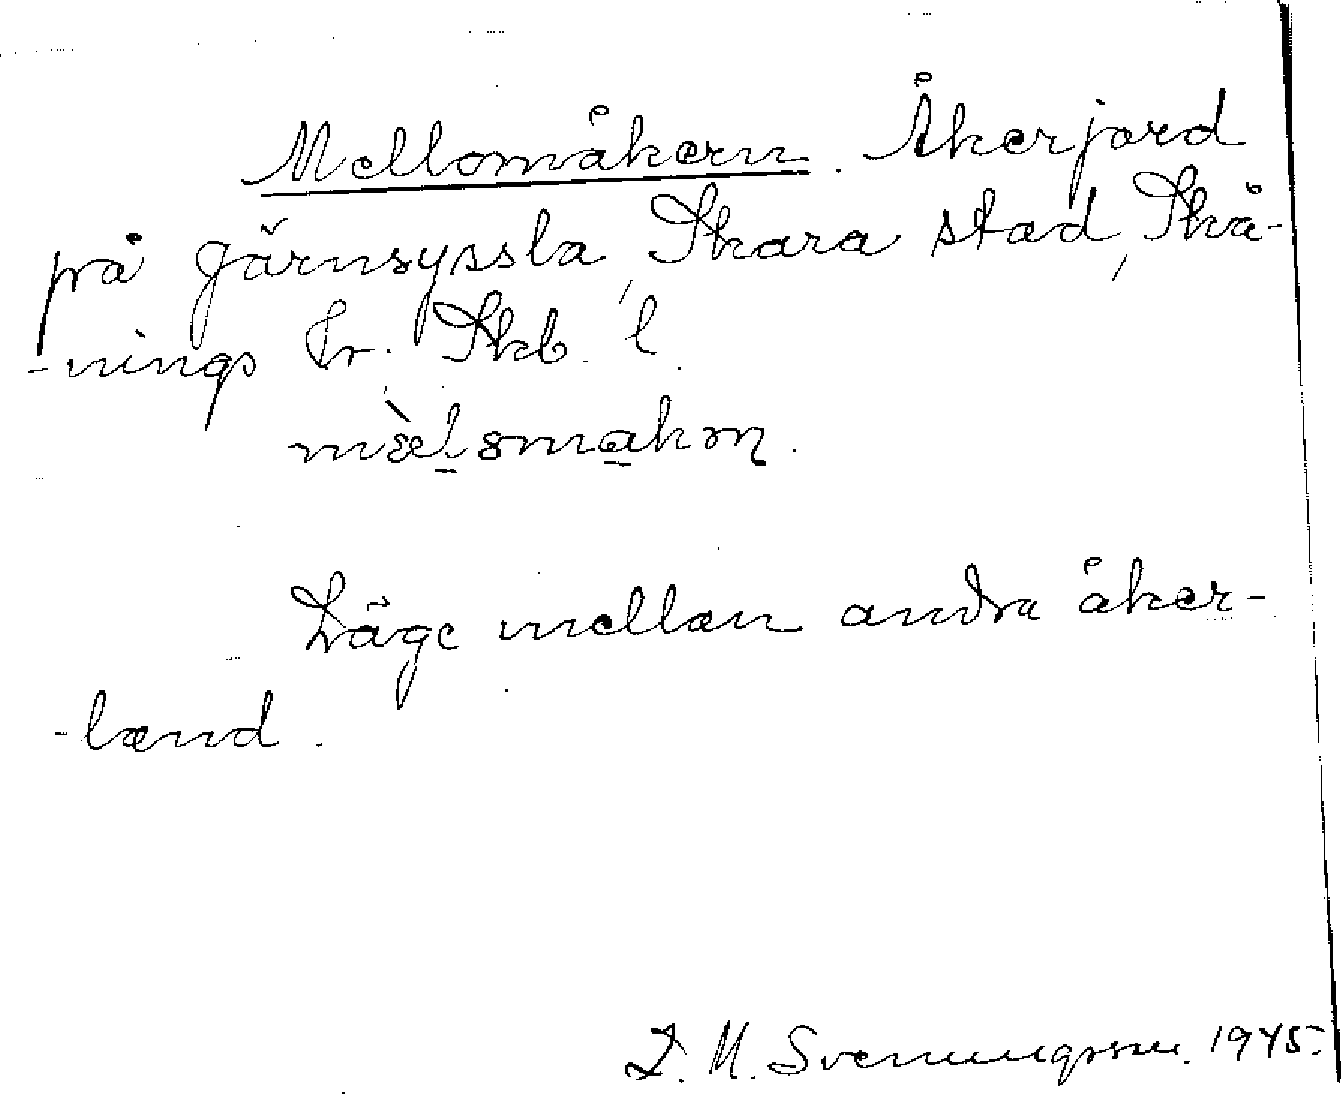 Mellomåkern. Åkerjord
på Järnsyssla, Skara stad, Skå-
-nings hr. Skb. l.
Läge mellan andra åker-
-land.
D. M. Svenungsson. 1945.